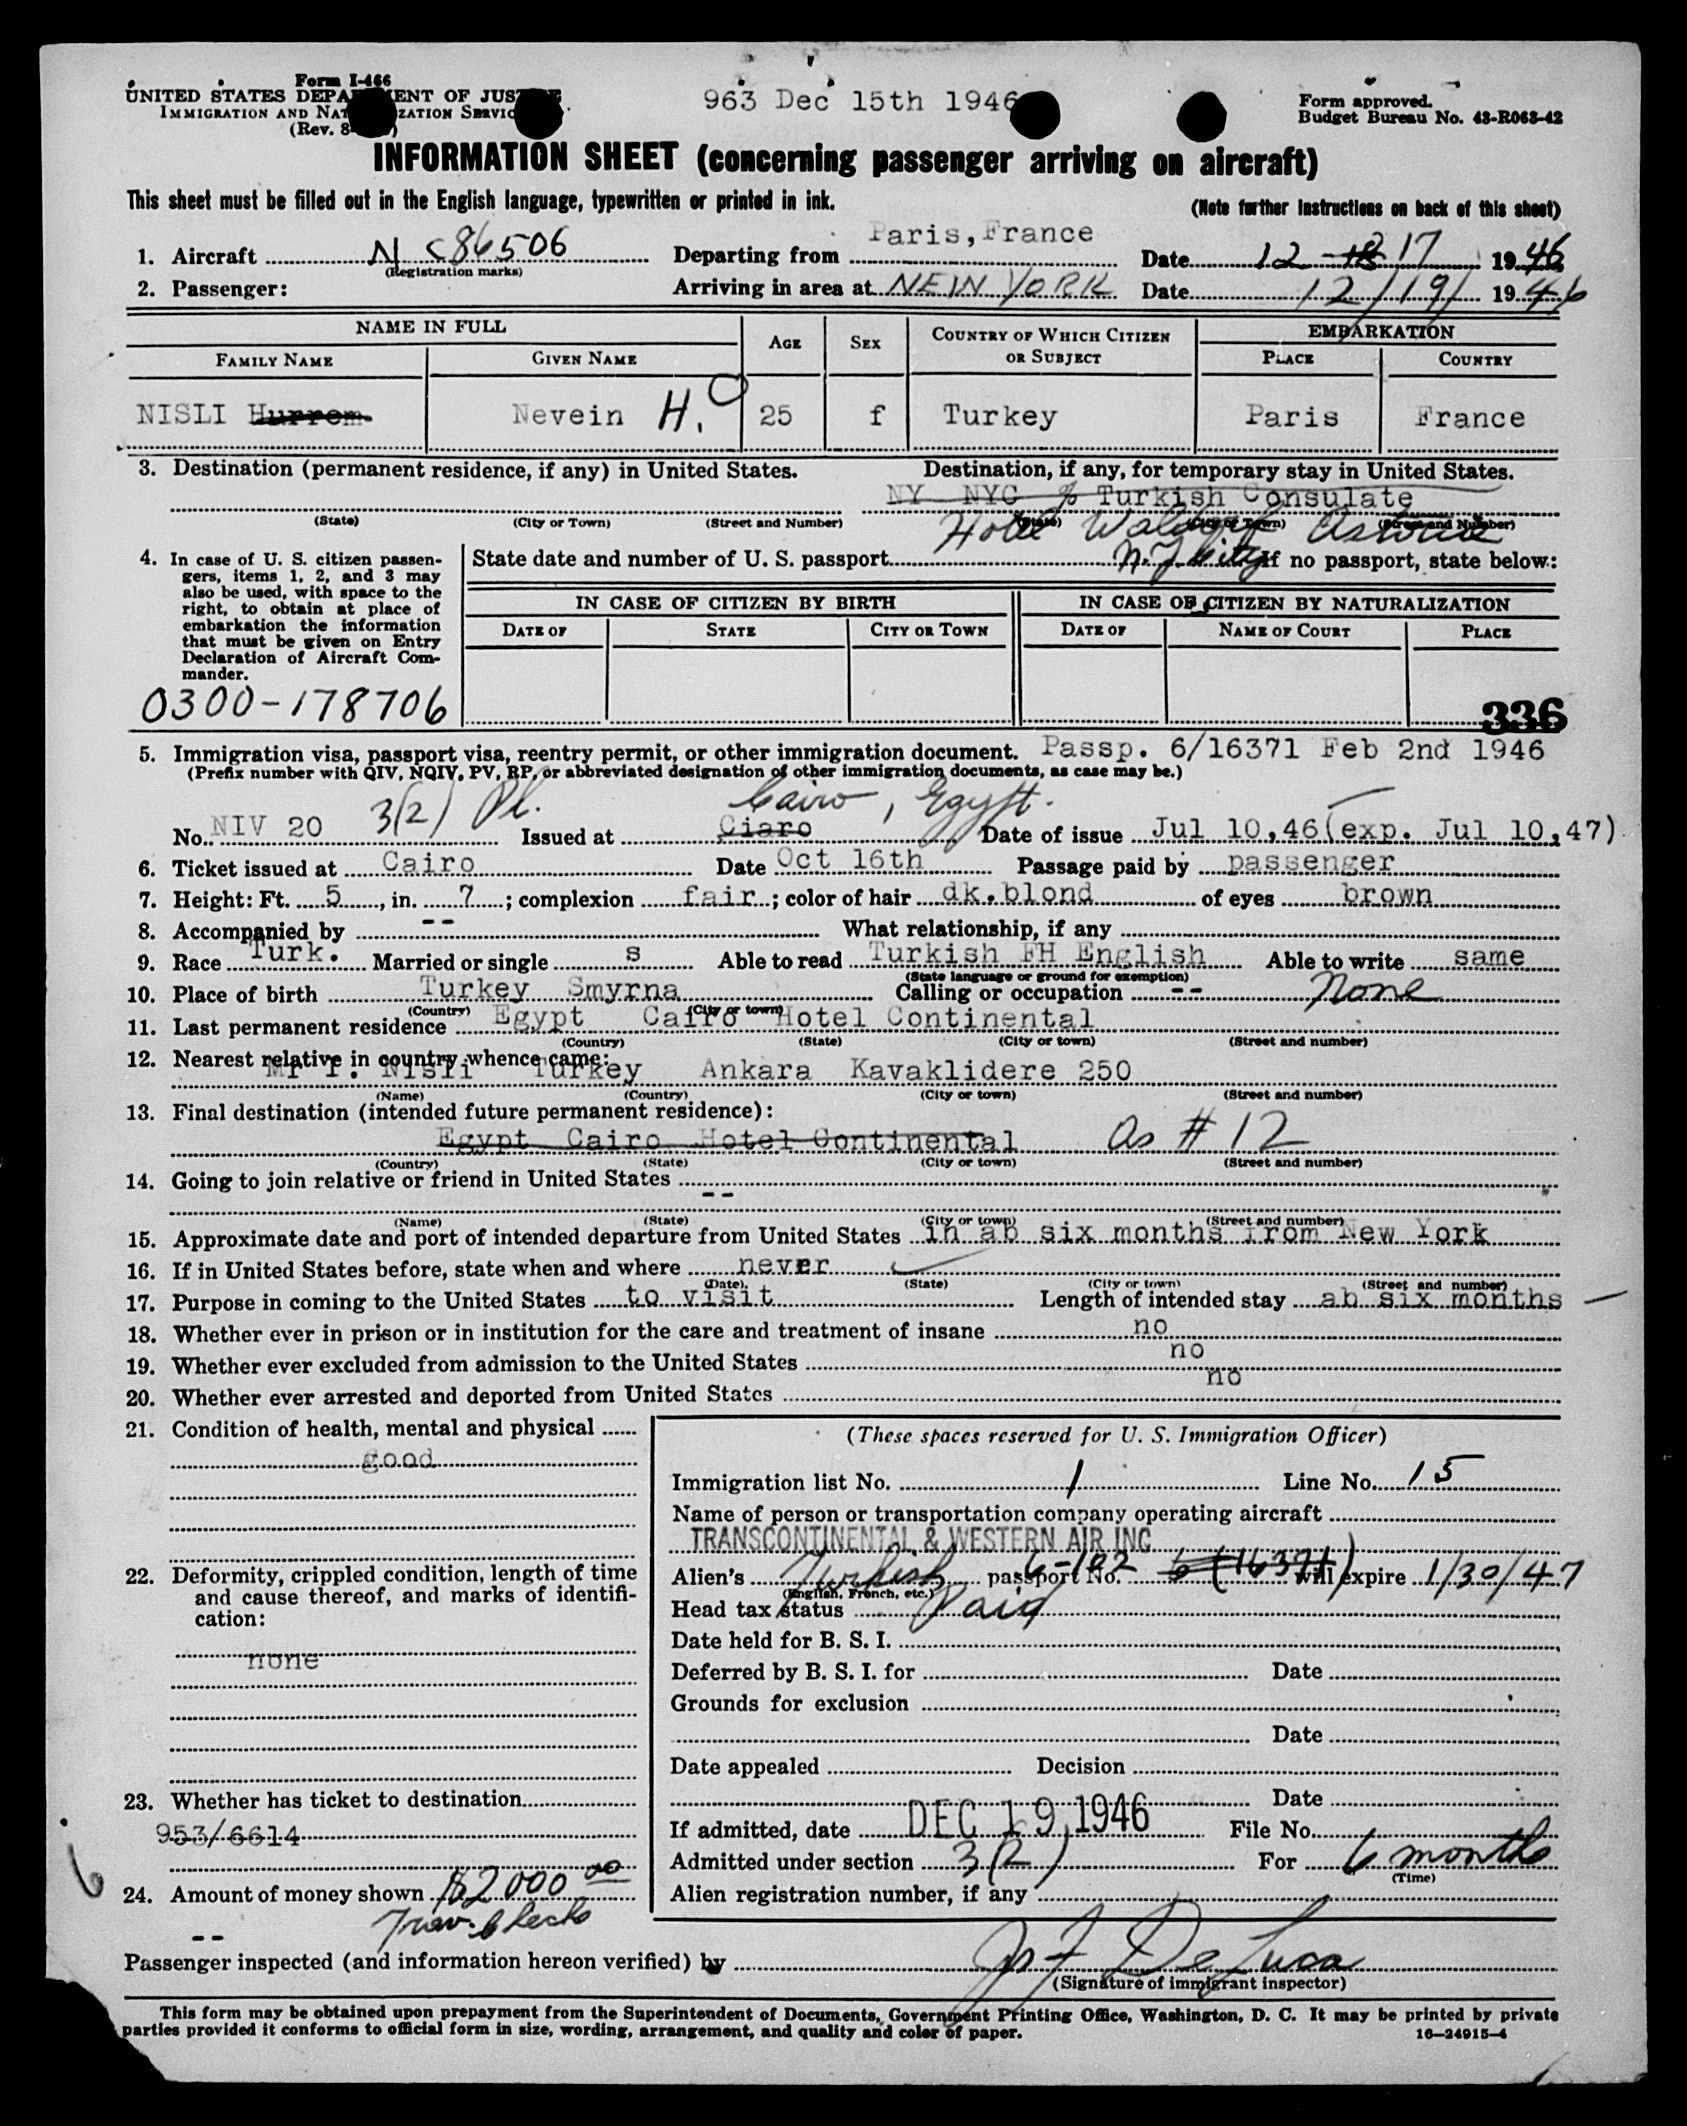 Form I-466
UNITED STATES DEPARTMENT OF JUSTICE
963 Dec 15th 1946
Form approved.
IMMIGRATION AND NATURALIZATION SERVICE
Budget Bureau No. 43-R063-42
(Rev. 8-
INFORMATION SHEET (concerning passenger arriving on aircraft)
This sheet must be filled out in the English language, typewritten or printed in ink.
(Note further instructions on back of this sheet)
1. Aircraft N C86506 Departing from Paris, France Date 12 - 17 1946
(Registration marks)
2. Passenger: Arriving in area at NEW YORK Date 12/19/ 1946
NAME IN FULL AGE SEX COUNTRY OF WHICH CITIZEN OR SUBJECT EMBARKATION
FAMILY NAME GIVEN NAME PLACE COUNTRY
NISLI Hurrem Nevein H. 25 f Turkey Paris France
3. Destination (permanent residence, if any) in United States. Destination, if any, for temporary stay in United States.
NY NYC % Turkish Consulate
(State) (City or Town) (Street and Number) (State) (City or Town) (Street and Number)
Hotel Waldorf Astoria
N.Y. City
4. In case of U. S. citizen passen-
gers, items 1, 2, and 3 may
also be used, with space to the
right, to obtain at place of
embarkation the information
that must be given on Entry
Declaration of Aircraft Com-
mander.
State date and number of U. S. passport If no passport, state below:
IN CASE OF CITIZEN BY BIRTH IN CASE OF CITIZEN BY NATURALIZATION
DATE OF STATE CITY OR TOWN DATE OF NAME OF COURT PLACE
0300-178706
336
5. Immigration visa, passport visa, reentry permit, or other immigration document. Passp. 6/16371 Feb 2nd 1946
(Prefix number with QIV, NQIV, PV, RP, or abbreviated designation of other immigration documents, as case may be.)
3(2) Cairo, Egypt.
No. NIV 20 Issued at Ciaro Date of issue Jul 10,46(exp. Jul 10,47)
6. Ticket issued at Cairo Date Oct 16th Passage paid by passenger
7. Height: Ft. 5, in. 7; complexion fair; color of hair dk.blond of eyes brown
8. Accompanied by -- What relationship, if any
9. Race Turk. Married or single s Able to read Turkish FH English Able to write same
(State language or ground for exemption)
10. Place of birth Turkey Smyrna Calling or occupation -- None
(Country) (City or town)
11. Last permanent residence Egypt Cairo Hotel Continental
(Country) (State) (City or town) (Street and number)
12. Nearest relative in country whence came:
Mr I. Nisli Turkey Ankara Kavaklidere 250
(Name) (Country) (City or town) (Street and number)
13. Final destination (intended future permanent residence):
Egypt Cairo Hotel Continental As # 12
(Country) (State) (City or town) (Street and number)
14. Going to join relative or friend in United States
--
(Name) (State) (City or town) (Street and number)
15. Approximate date and port of intended departure from United States in ab six months from New York
16. If in United States before, state when and where never
(Date) (State) (City or town) (Street and number)
17. Purpose in coming to the United States to visit Length of intended stay ab six months
18. Whether ever in prison or in institution for the care and treatment of insane no
19. Whether ever excluded from admission to the United States no
20. Whether ever arrested and deported from United States no
21. Condition of health, mental and physical
good
22. Deformity, crippled condition, length of time
and cause thereof, and marks of identifi-
cation:
none
23. Whether has ticket to destination
953/6614
6
24. Amount of money shown $2000 00
Trav. Checks
--
(These spaces reserved for U. S. Immigration Officer)
Immigration list No. 1 Line No. 15
Name of person or transportation company operating aircraft
TRANSCONTINENTAL & WESTERN AIR INC
Alien's Turkish passport No. 6-102 6 (16371) will expire 1/30/47
(English, French, etc.)
Head tax status Paid
Date held for B. S. I.
Deferred by B. S. I. for Date
Grounds for exclusion
Date
Date appealed Decision
Date
If admitted, date DEC 19 1946 File No.
Admitted under section 3(2) For 6 months
(Time)
Alien registration number, if any
Passenger inspected (and information hereon verified) by De Luca
(Signature of immigrant inspector)
This form may be obtained upon prepayment from the Superintendent of Documents, Government Printing Office, Washington, D. C. It may be printed by private
parties provided it conforms to official form in size, wording, arrangement, and quality and color of paper.
16—24915-4